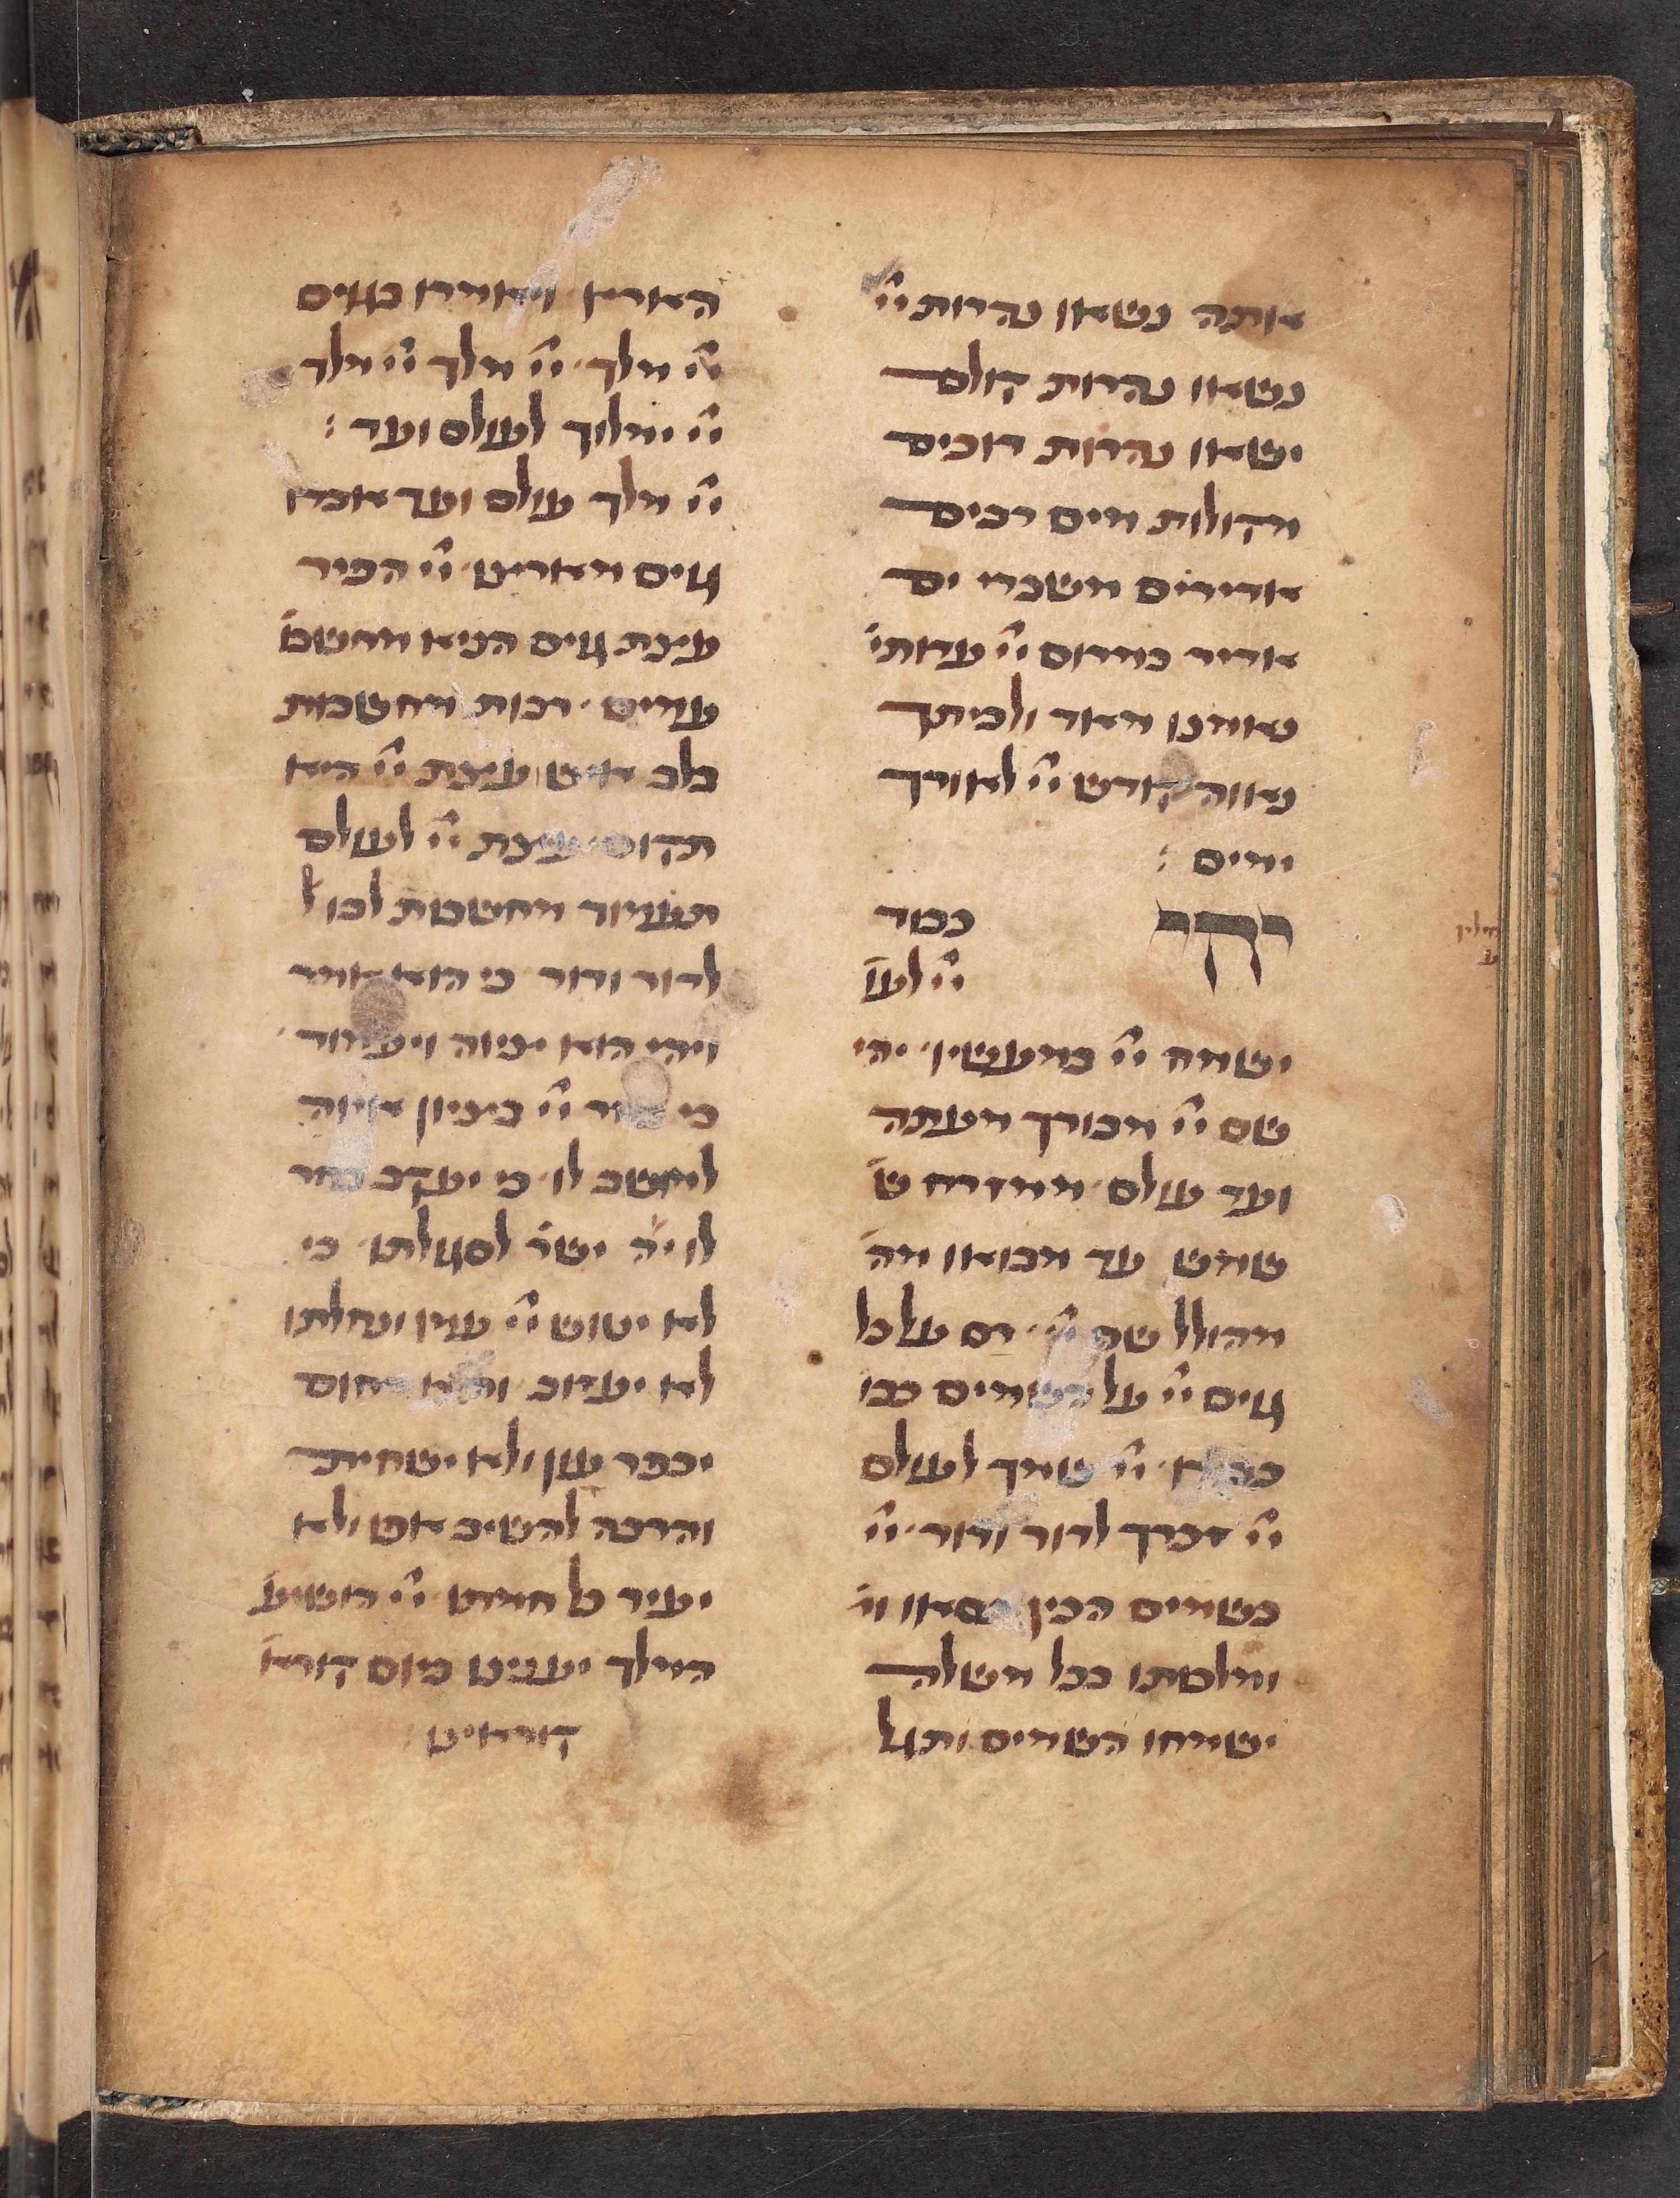 אותה נשאו נהרות ייי
נשאו נהרות קולם
ישאו נהרות דוכים
מקולות מים רבים
אדירים משברי ים
אדיר במרום ייי עדותי
נאמנו מאד ולביתך
נאוה קודש ייי לאורך
ימים :
רהך כבוד
ייי לעו
ישמח ייי במעשיו ׳ יהי
שם ייי מבורך מעתה
ועד עולם ׳ ממזרח ש
שמש עד מבואו מה
מהולל שם ייי ׳ רם על כל
גוים ייי על השמים כבו
כבודו ׳ ייי שמך לעולם
ייי זכרך לדור ודור ׳ ייי
בשמים הכין כסאו וי
ומלכותו בכל משלה
ישמחו השמים ותגל
הארץ ׳ ויאמרו בגוים
ייי מלך ׳ ייי מלך ייי מלך
ייי ימלוך לעולם ועד :
ייי מלך עולם ועד אבדו
גוים מארצו ׳ ייי הפיר
עצת גוים הניא מחשבו
עמים ׳ רבות מחשבות
בלב איש ועצת ייי היא
תקום ׳ עצת ייי לעולם
תעמוד מחשבות לבו ל
לדור ודור ׳ כי הוא אמר
ויהי הוא ציוה ויעמוד ׳
כי בחר ייי בציון איוה
למושב לו ׳ כי יעקב בחר
לו יה ישר לסגולתו ׳ כי
לא יטוש ייי עמו ונחלתו
לא יעזוב ׳ והוא רחום
יכפר עון ולא ישחית
והרבה להשיב אפו ולא
יעיר כל חמתו ׳ ייי הושיע
המלך יעננו ביום קורא
קוראינו